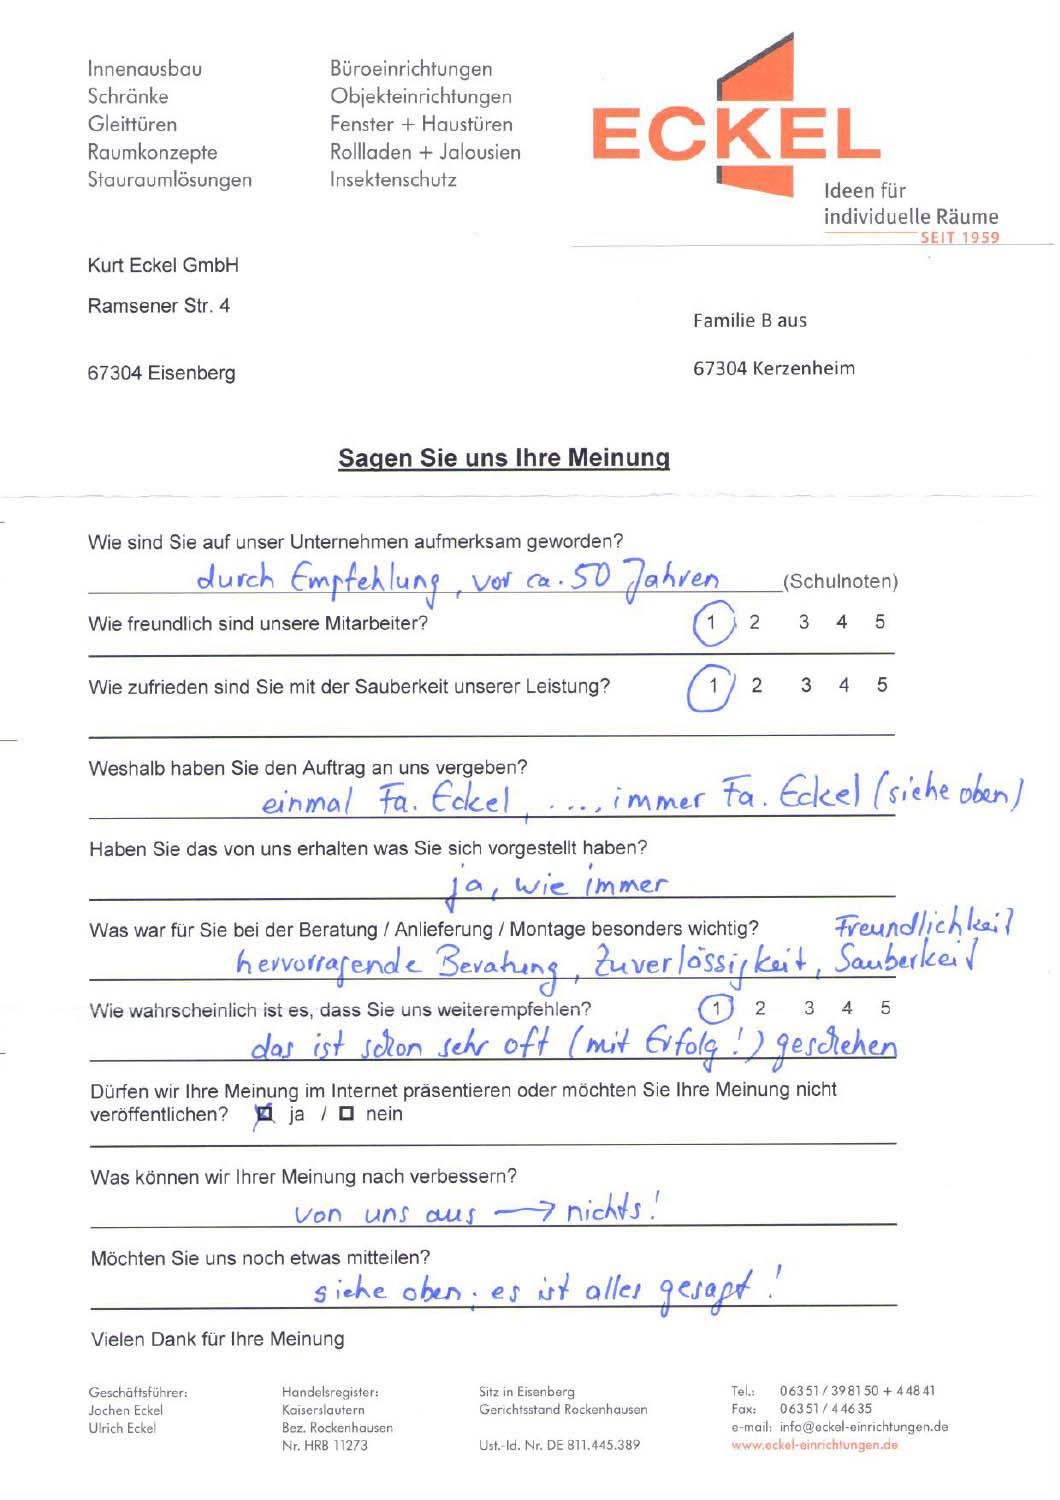 Innenausbau
Schränke
Gleittüren
Raumkonzepte
Stauraumlösungen
Büroeinrichtungen
Objekteinrichtungen
Fenster + Haustüren
Rollladen + Jalousien
Insektenschutz
ECKEL
Ideen für
individuelle Räume
SEIT 1959
Kurt Eckel GmbH
Ramsener Str. 4
67304 Eisenberg
Familie B aus
67304 Kerzenheim
Sagen Sie uns Ihre Meinung
Wie sind Sie auf unser Unternehmen aufmerksam geworden?
durch Empfehlung, vor ca. 50 Jahren (Schulnoten)
Wie freundlich sind unsere Mitarbeiter? 1 2 3 4 5
Wie zufrieden sind Sie mit der Sauberkeit unserer Leistung? 1 2 3 4 5
Weshalb haben Sie den Auftrag an uns vergeben?
einmal Fa. Eckel, .... immer Fa. Eckel (siehe oben)
Haben Sie das von uns erhalten was Sie sich vorgestellt haben?
ja, wie immer
Was war für Sie bei der Beratung / Anlieferung / Montage besonders wichtig? Freundlichkeit
hervorragende Beratung, Zuverlässigkeit, Sauberkeit
Wie wahrscheinlich ist es, dass Sie uns weiterempfehlen? 1 2 3 4 5
das ist schon sehr oft (mit Erfolg!) geschehen
Dürfen wir Ihre Meinung im Internet präsentieren oder möchten Sie Ihre Meinung nicht
veröffentlichen? ☒ ja / ☐ nein
Was können wir Ihrer Meinung nach verbessern?
von uns aus → nichts!
Möchten Sie uns noch etwas mitteilen?
siehe oben; es ist alles gesagt!
Vielen Dank für Ihre Meinung
Geschäftsführer:
Jochen Eckel
Ulrich Eckel
Handelsregister:
Kaiserslautern
Bez. Rockenhausen
Nr. HRB 11273
Sitz in Eisenberg
Gerichtsstand Rockenhausen
Ust.-Id. Nr. DE 811.445.389
Tel.: 06351 / 398150 + 44841
Fax: 06351 / 44635
e-mail: info@eckel-einrichtungen.de
www.eckel-einrichtungen.de